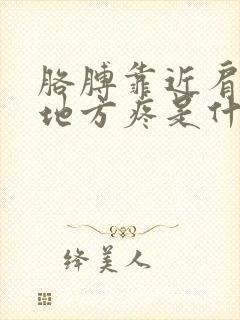 胳膊靠近肩
地方疼是什
绛美人